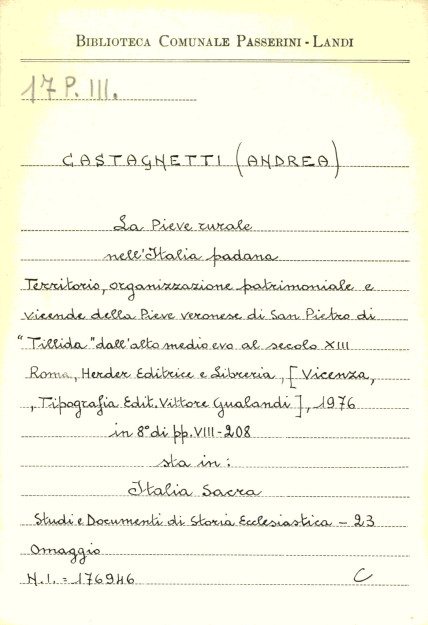 BIBLIOTECA COMUNALE PASSERINI - LANDI
17 P. III.
CASTAGNETTI (ANDREA)
La Pieve rurale
nell'Italia padana
Territorio, organizzazione patrimoniale e
vicende della Pieve veronese di San Pietro di
"Tillida" dall'alto medio evo al secolo XIII
Roma, Herder Editrice e Libreria, [Vicenza,
, Tipografia Edit. Vittore Gualandi], 1976
in 8° di pp. VIII-208
sta in:
Italia Sacra
Studi e Documenti di Storia Ecclesiastica - 23
Omaggio
N.I. = 176946 C